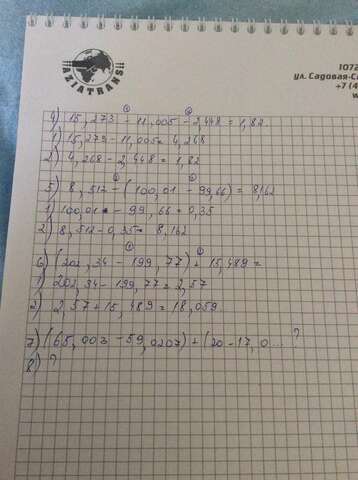 AZIATRANS!!
1072
ул. Садовая-Са
+7 (4
4) 15,273 - 11,005 - 2,448 = 1,82
1) 15,273 - 11,005 = 4,268
2) 4,268 - 2,448 = 1,82
5) 8,512 - (100,01 - 99,66) = 8,162
1) 100,01 - 99,66 = 0,35
2) 8,512 - 0,35 = 8,162
6) (202,34 - 199,77) + 15,489 =
1) 202,34 - 199,77 = 2,57
2) 2,57 + 15,489 = 18,059
7) (65,003 - 59,0207) + (20 - 17,0... ?
8) ?